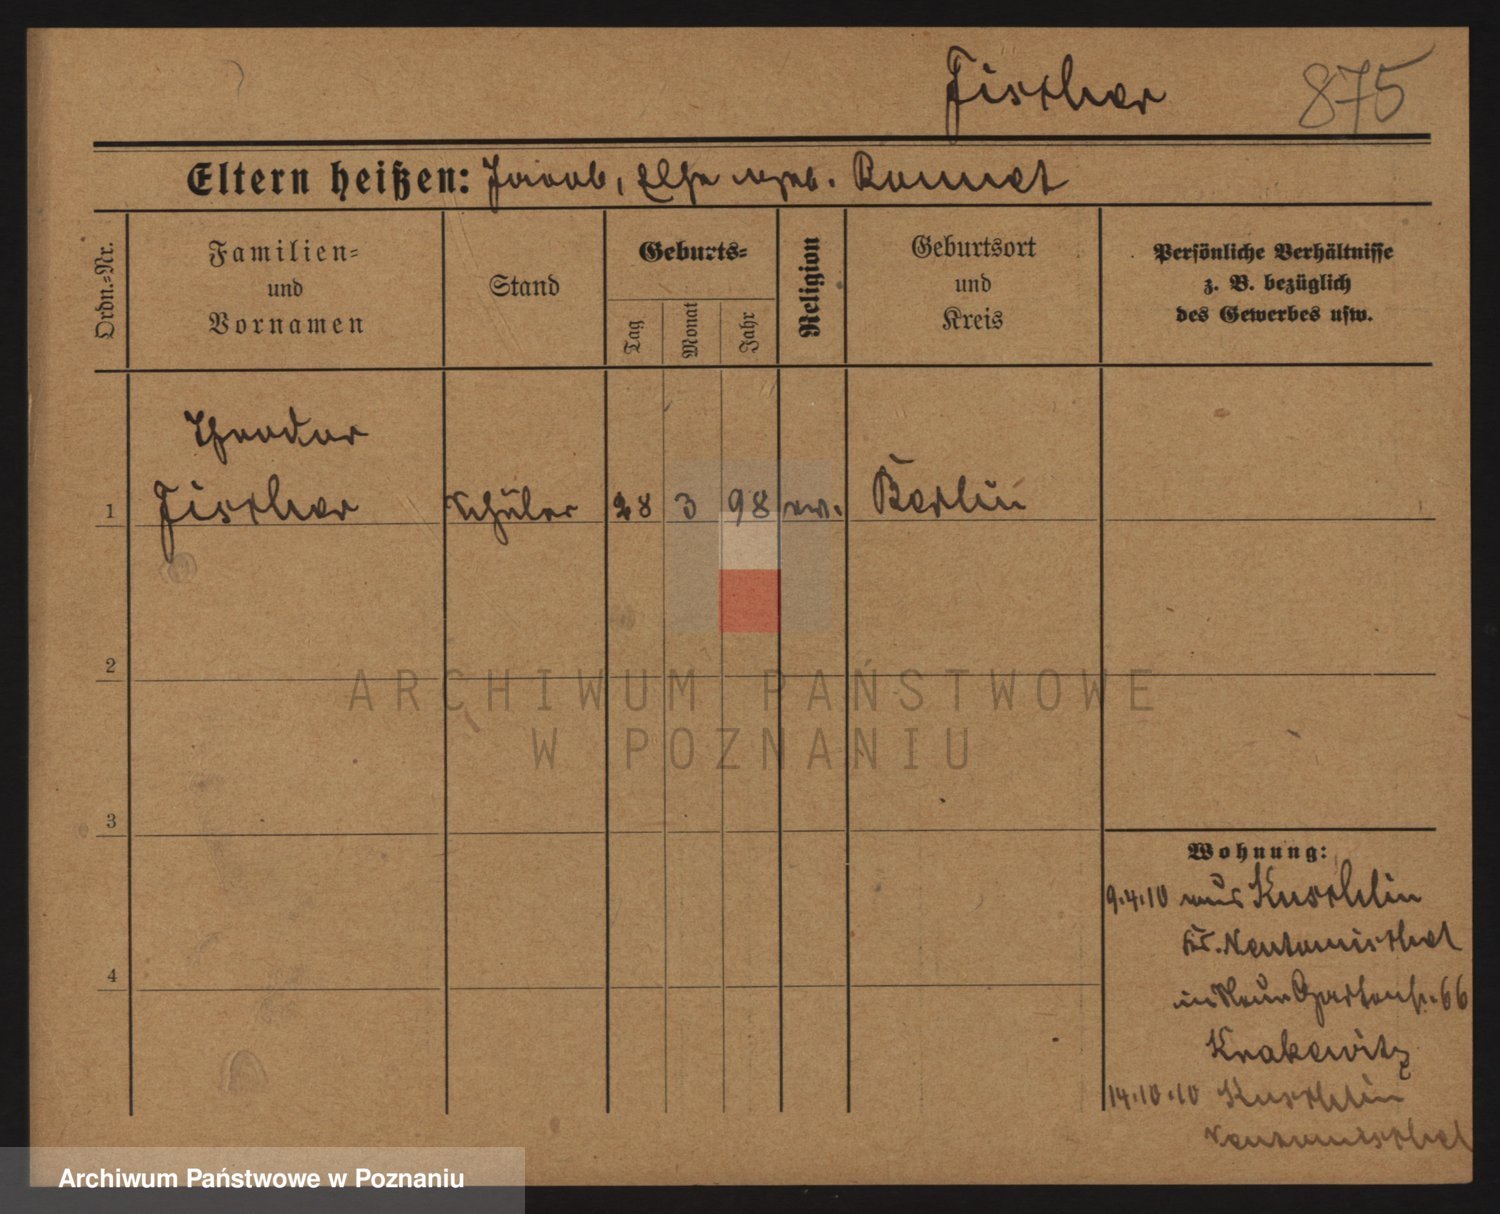 Fischer 875
Eltern heißen: Jacob, Else geb. Rommel
Ordn.-Nr.
Familien- und Vornamen
Stand
Geburts-
Tag
Monat
Jahr
Religion
Geburtsort und Kreis
Persönliche Verhältnisse
z. B. bezüglich
des Gewerbes usw.
Theodor
1 Fischer Schüler 28 3 98 ev. Berlin
2
3
4
Wohnung:
9.4.10 aus Kuschlin
Kr. Neutomischel
Gartenstr. 66
Krakowitz
14.10.10 Kuschlin
Neutomischel
ARCHIWUM PAŃSTWOWE
W POZNANIU
Archiwum Państwowe w Poznaniu